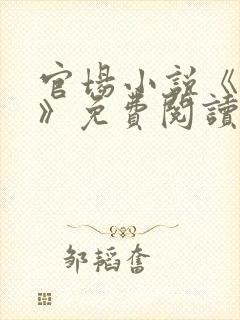 官場小說《
》免費閱讀
邹韬奮